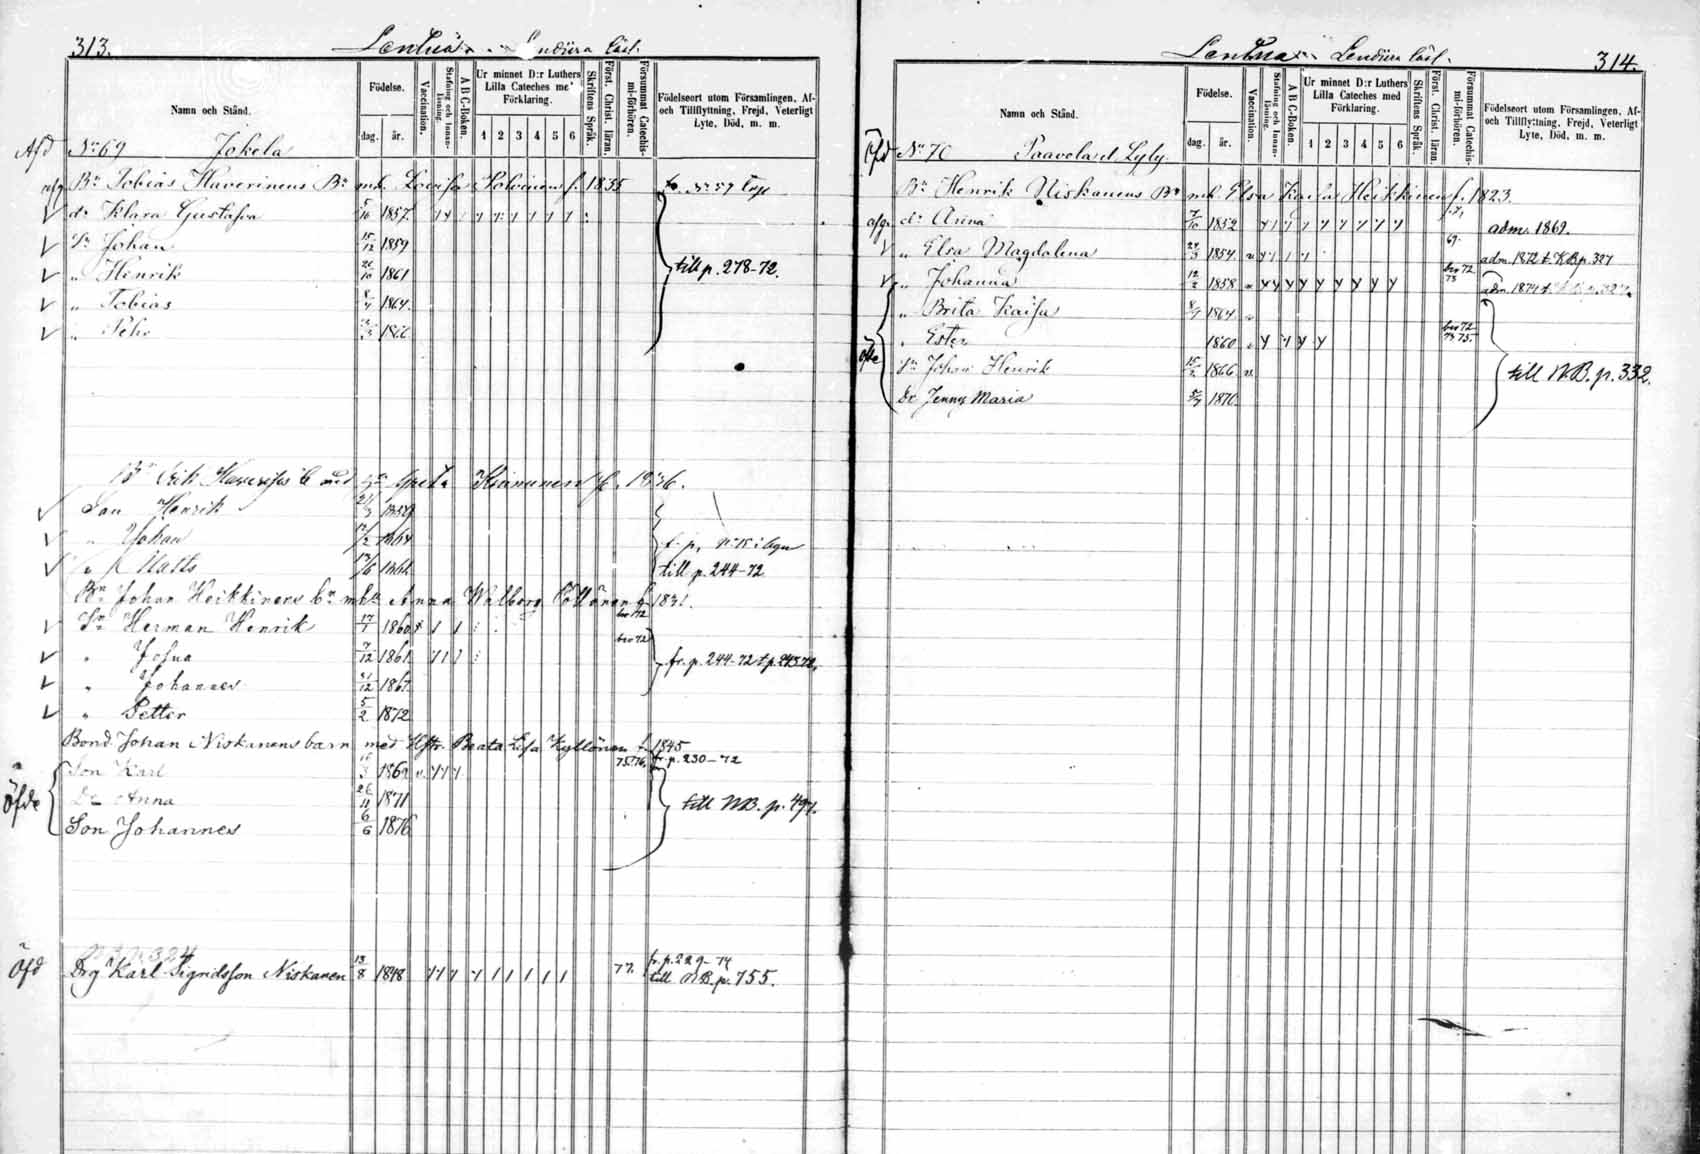 313. Lentua Lendiira läsl.
Namn och Stånd. Födelse. dag. år. Vaccination. Stafning och Innanläsning. A B C-Boken. Ur minnet D:r Luthers Lilla Cateches med Förklaring. 1 2 3 4 5 6 Skriftens Språk. Först. Christ. läran. Försummat Catechismi-förhören. Födelseort utom Församlingen, Af- och Tillflyttning, Frejd, Veterligt Lyte, Död, m. m.
Afd No 69 Jokela
Bn Tobias Haverinens Bn mh. Lovisa Polvinen f. 1835 fr. No 57
dr Klara Gustafva 5/10 1857.
Sn Johan 15/12 1859
" Henrik 20/10 1861 till p. 278-72.
" Tobias 8/4 1864.
" Pehr 1866
Greta Kinnunen f.
Son Henrik
" Johan 12/2 1864
" Matts till p. 244-72
Bn Johan Heikkinens bn mhu Anna Walborg f. 1831.
Sn Herman Henrik 17/1 1860 bro 72
" Josua 7/12 1861 bro 72 fr. p. 244-72
" Johannes 21/12 1867
" Petter 5/2 1872
Bond. Johan Niskanens barn med Hstr. Beata Lisa Kyllönen f. 1845
Son Karl 1862 75. 76. fr. p. 230-72
Öfde Dr Anna 26/11 1871 till NB. p. 497.
Son Johannes 6/6 1876
N B p. 324
Öfd Drg Karl Sigridsson Niskanen 13/8 1848 77. fr. p. 229-74
till NB. p. 755.
Lentua Lendiira läsl. 314.
Namn och Stånd. Födelse. dag. år. Vaccination. Stafning och Innanläsning. A B C-Boken. Ur minnet D:r Luthers Lilla Cateches med Förklaring. 1 2 3 4 5 6 Skriftens Språk. Först. Christ. läran. Försummat Catechismi-förhören. Födelseort utom Församlingen, Af- och Tillflyttning, Frejd, Veterligt Lyte, Död, m. m.
Öfd No 70 Paavola l. Lyly.
Bn Henrik Niskanens Bn mh Elsa Kaisa Heikkinen f. 1823.
afg. dr Anna 7/10 1852 adm. 1869.
" Elsa Magdalena 24/3 1854 69. adm. 1872 t. KB p. 327
" Johanna 12/2 1858 bro 72 73 adm. 1874
" Brita Kaisa 8/9 1864
" Ester 1860 bro 72 75.
öfde Sn Johan Henrik 15/2 1866 till NB. p. 332.
Dr Jenny Maria 1870.